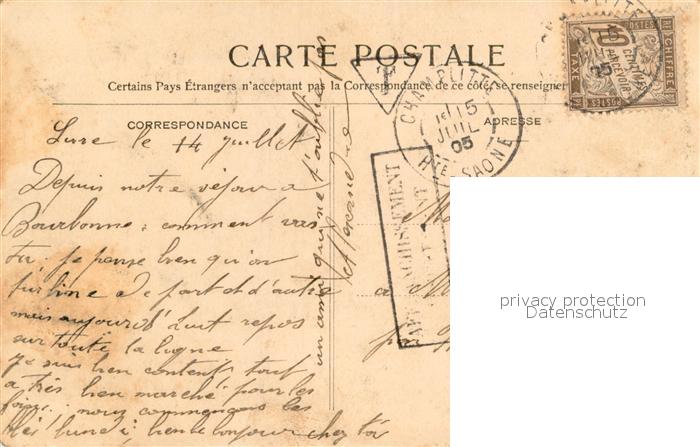 CARTE POSTALE
Certains Pays Étrangers n'acceptent pas la Correspondance de ce côté, se renseigner
CORRESPONDANCE
ADRESSE
T
CHAMPLITTE
15
JUIL
05
HTE SAONE
POSTES
10
CENTIMES
A PERCEVOIR
TAXE
CHIFFRE
POSTES
05
AFFRANCHISSEMENT
Lure le 14 juillet
Depuis notre séjour a
Bourbonne, comment vas
tu. je pense bien qu'on
turbine de part et d'autre
mais aujourd'hui repos
sur toute la ligne
je suis bien content tout
a très bien marché pour les
foins. nous commençons les
blés lundi, bien le bonjour chez toi
un ami qui ne t'oublie pas
privacy protection
Datenschutz